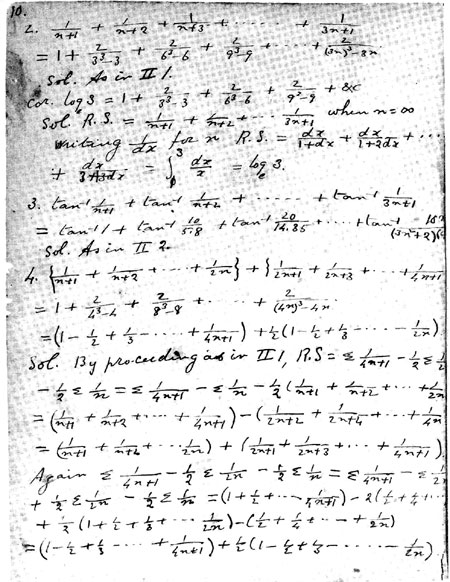 10.
2. 1/(n+1) + 1/(n+2) + 1/(n+3) + ...... + 1/(3n+1)
= 1 + 2/(3³-3) + 2/(6³-6) + 2/(9³-9) + ...... + 2/((3n)³-3n)
Sol. As in II 1.
Cor. logₑ3 = 1 + 2/(3³-3) + 2/(6³-6) + 2/(9³-9) + &c
Sol R.S. = 1/(n+1) + 1/(n+2) + ... 1/(3n+1) when n=∞
Writing 1/dx for n R.S. = dx/(1+dx) + dx/(1+2dx) + ...
+ dx/ = ∫ dx/x = logₑ3.
3. tan⁻¹ 1/(n+1) + tan⁻¹ 1/(n+2) + ...... + tan⁻¹ 1/(3n+1)
= tan⁻¹1 + tan⁻¹ 10/5.8 + tan⁻¹ 20/14.35 + .... + tan⁻¹
Sol. As in II 2.
4. {1/(n+1) + 1/(n+2) + ... + 1/2n} + {1/(2n+1) + 1/(2n+3) + ... + 1/(4n+1)
= 1 + 2/(4³-4) + 2/(8³-8) + ..... + 2/((4n)³-4n)
= (1 - 1/2 + 1/3 - ..... + 1/(4n+1)) + 1/2(1 - 1/2 + 1/3 - .... - 1/2n)
Sol. By proceeding as in II 1, R.S = Σ 1/(4n+1) - 1/2 Σ
- 1/2 Σ 1/n = Σ 1/(4n+1) - Σ 1/n - 1/2(1/(n+1) + 1/(n+2) + ... + 1/2n
= (1/(n+1) + 1/(n+2) + ... + 1/(4n+1)) - (1/(2n+2) + 1/(2n+4) + ... + 1/4n
= (1/(n+1) + 1/(n+2) + ... 1/2n) + (1/(2n+1) + 1/(2n+3) + ... + 1/(4n+1))
Again Σ 1/(4n+1) - 1/2 Σ 1/2n - 1/2 Σ 1/n = Σ 1/(4n+1) - Σ
+ 1/2 Σ 1/2n - 1/2 Σ 1/n = (1 + 1/2 + ... 1/(4n+1)) - 2(1/2 + 1/4 + ...
+ 1/2(1 + 1/2 + 1/3 + ... 1/2n) - (1/2 + 1/4 + ... + 1/2n)
= (1 - 1/2 + 1/3 - ..... + 1/(4n+1)) + 1/2(1 - 1/2 + 1/3 - ..... - 1/2n)